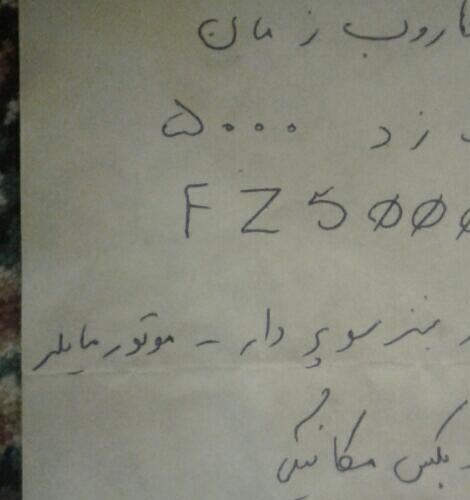 اروب زمان
زد ۵۰۰۰
FZ5000
بنز سوپر دار - موتور مایلر
بکس مکانیکی